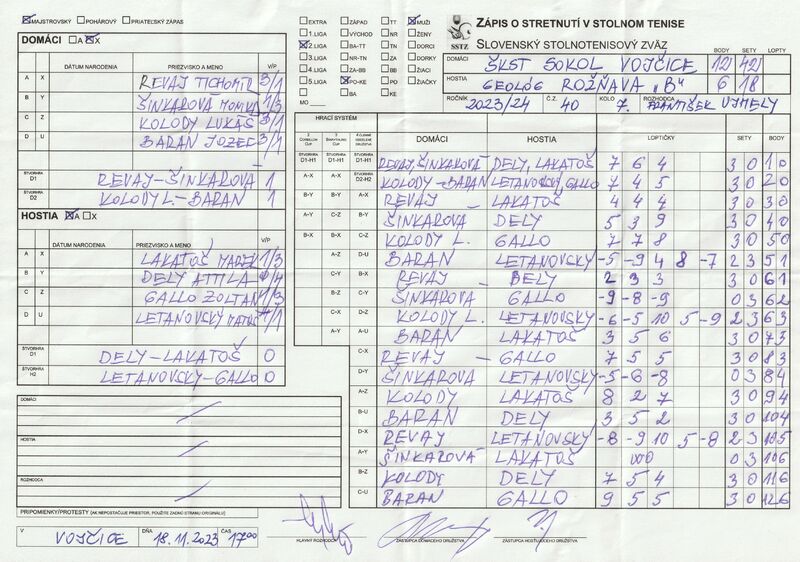 MAJSTROVSKÝ POHÁROVÝ PRIATEĽSKÝ ZÁPAS
DOMÁCI A X
DÁTUM NARODENIA PRIEZVISKO A MENO V/P
A X REVAJ TICHOMIR 3/1
B Y ŠINKAROVA MONIKA 1/3
C Z KOLODY LUKÁŠ 3/1
D U BARAN JOZEF 3/1
ŠTVORHRA D1 REVAY-ŠINKAROVA 1
ŠTVORHRA D2 KOLODY L.-BARAN 1
HOSTIA A X
DÁTUM NARODENIA PRIEZVISKO A MENO V/P
A X LAKATOŠ MAREK 1/3
B Y DELY ATTILA 0/4
C Z GALLO ZOLTAN 1/3
D U LETANOVSKÝ MATÚŠ /1
ŠTVORHRA D1 DELY-LAKATOŠ 0
ŠTVORHRA H2 LETANOVSKY-GALLO 0
DOMÁCI
HOSTIA
ROZHODCA
PRIPOMIENKY/PROTESTY (AK NEPOSTAČUJE PRIESTOR, POUŽITE ZADNÚ STRANU ORIGINÁLU)
V VOJČICE DŇA 18.11.2023 ČAS 17:00
EXTRA ZÁPAD TT MUŽI
1.LIGA VÝCHOD NR ŽENY
2.LIGA BA-TT TN DORCI
3.LIGA NR-TN ZA DORKY
4.LIGA ZA-BB BB ŽIACI
5.LIGA PO-KE PO ŽIAČKY
BA KE
MO
SSTZ
ZÁPIS O STRETNUTÍ V STOLNOM TENISE
SLOVENSKÝ STOLNOTENISOVÝ ZVÄZ BODY SETY LOPTY
DOMÁCI ŠKST SOKOL VOJČICE 12 42
HOSTIA GEOLÓG ROŽŇAVA "B" 6 18
ROČNÍK 2023/24 Č.Z. 40 KOLO 7. ROZHODCA FRANTIŠEK UJHELY
HRACÍ SYSTÉM
DOMÁCI HOSTIA LOPTIČKY SETY BODY
ŠTVORHRA D1-H1 ŠTVORHRA D1-H1 ŠTVORHRA D1-H1 REVAY, ŠINKAROVÁ DELY, LAKATOŠ 7 6 4 3 0 1 0
A-X A-X ŠTVORHRA D2-H2 KOLODY-BARAN LETANOVSKY, GALLO 7 4 5 3 0 2 0
B-Y B-Y A-X REVAY - LAKATOŠ 4 4 4 3 0 3 0
A-Y C-Z B-Y ŠINKAROVA DELY 5 3 9 3 0 4 0
B-X B-X C-Z KOLODY L. GALLO 7 7 8 3 0 5 0
A-Z D-U BARAN LETANOVSKY -5 -9 4 8 -7 2 3 5 1
C-Y B-X REVAY - DELY 2 3 3 3 0 6 1
B-Z C-Y ŠINKAROVÁ GALLO -9 -8 -9 0 3 6 2
C-X D-Z KOLODY L. LETANOVSKY -6 -5 10 5 -9 2 3 6 3
A-Y A-U BARAN LAKATOŠ 3 5 6 3 0 7 3
C-X REVAY - GALLO 7 5 5 3 0 8 3
D-Y ŠINKAROVA LETANOVSKY -5 -6 -8 0 3 8 4
A-Z KOLODY LAKATOŠ 8 2 7 3 0 9 4
B-U BARAN DELY 3 5 2 3 0 10 4
D-X REVAY LETANOVSKY -8 -9 10 5 -8 2 3 10 5
A-Y ŠINKAROVÁ LAKATOŠ 0 3 10 6
B-Z KOLODY DELY 7 5 4 3 0 11 6
C-U BARAN GALLO 9 5 5 3 0 12 6
HLAVNÝ ROZHODCA ZÁSTUPCA DOMÁCEHO DRUŽSTVA ZÁSTUPCA HOSŤUJÚCEHO DRUŽSTVA